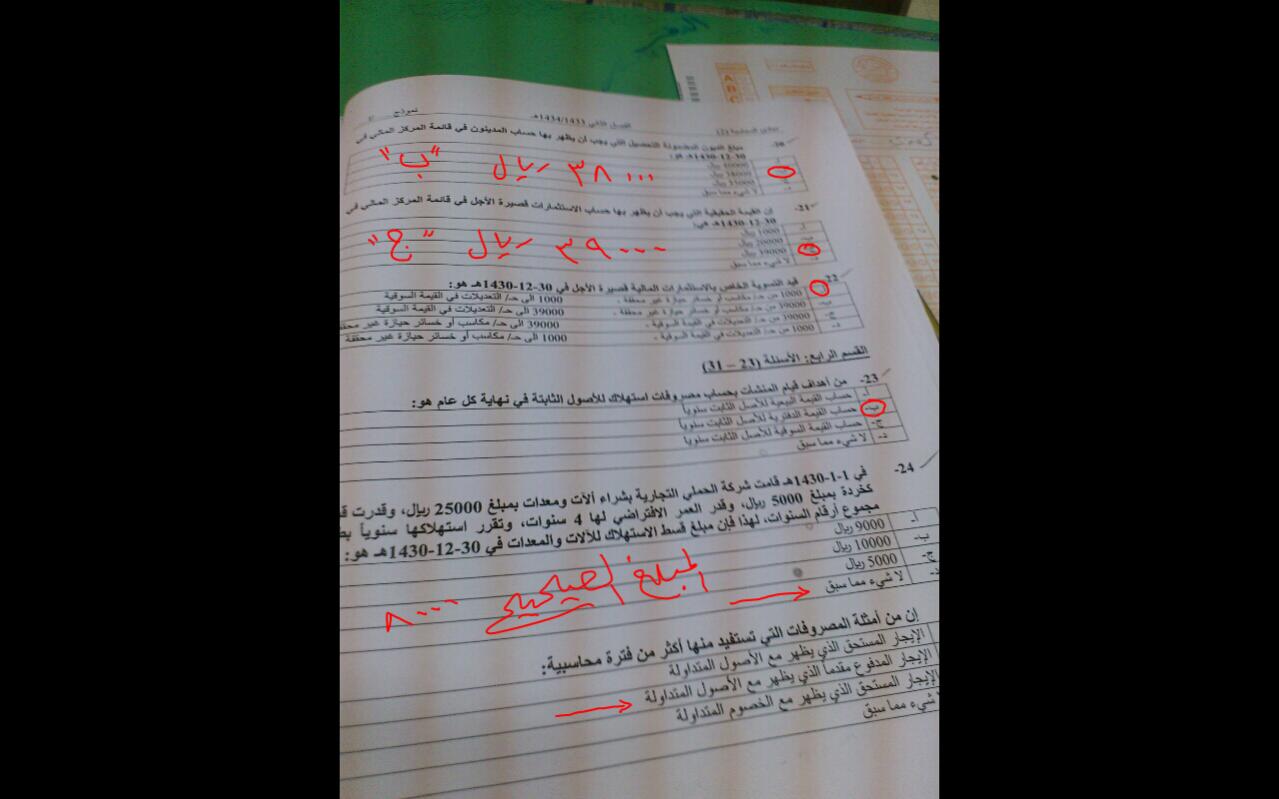 الدفتر
نموذج
الفصل الثاني 1434/1433هـ
20- مبلغ الديون المضمونة التحصيل التي يجب أن يظهر بها حساب المدينون في قائمة المركز المالي في
30-12-1430هـ هو:
أ- 40000 ريال
ب- 38000 ريال
د- لا شيء مما سبق
٣٨٠٠٠ ريال "ب"
21- إن القيمة الحقيقية التي يجب أن يظهر بها حساب الاستثمارات قصيرة الأجل في قائمة المركز المالي في
30-12-1430هـ هي:
أ- 1000 ريال
ب- 20000 ريال
ج- 39000 ريال
د- لا شيء مما سبق
٣٩٠٠٠ ريال "ج"
22- قيد التسوية الخاص بالاستثمارات المالية قصيرة الأجل في 30-12-1430هـ هو:
أ- 1000 من حـ/ مكاسب أو خسائر حيازة غير محققة . 1000 الى حـ/ التعديلات في القيمة السوقية
ب- 39000 من حـ/ مكاسب أو خسائر حيازة غير محققة . 39000 الى حـ/ التعديلات في القيمة السوقية
ج- 39000 من حـ/ التعديلات في القيمة السوقية . 39000 الى حـ/ مكاسب أو خسائر حيازة غير
د- 1000 من حـ/ التعديلات في القيمة السوقية . 1000 الى حـ/ مكاسب أو خسائر حيازة غير محققة
القسم الرابع: الأسئلة (23 – 31)
23- من أهداف قيام المنشآت بحساب مصروفات استهلاك للأصول الثابتة في نهاية كل عام هو:
أ- حساب القيمة البيعية للأصل الثابت سنوياً
ب- حساب القيمة الدفترية للأصل الثابت سنوياً
ج- حساب القيمة السوقية للأصل الثابت سنوياً
د- لا شيء مما سبق
24- في 1-1-1430هـ قامت شركة الحملي التجارية بشراء ألآت ومعدات بمبلغ 25000 ريال، وقدرت
كخردة بمبلغ 5000 ريال، وقدر العمر الافتراضي لها 4 سنوات، وتقرر استهلاكها سنوياً
مجموع أرقام السنوات، لهذا فإن مبلغ قسط الاستهلاك للآلات والمعدات في 30-12-1430هـ هو:
أ- 9000 ريال
ب- 10000 ريال
ج- 5000 ريال
د- لا شيء مما سبق
المبلغ الصحيح ٨٠٠٠
إن من أمثلة المصروفات التي تستفيد منها أكثر من فترة محاسبية:
الإيجار المستحق الذي يظهر مع الأصول المتداولة
الإيجار المدفوع مقدماً الذي يظهر مع الأصول المتداولة
الإيجار المستحق الذي يظهر مع الخصوم المتداولة
شيء مما سبق